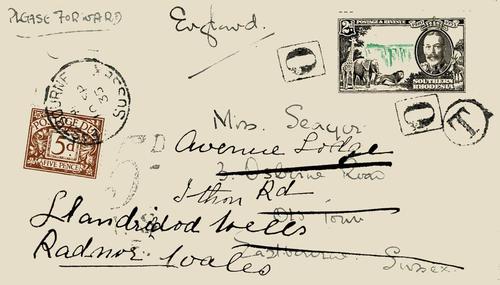 PLEASE FORWARD
England.
2D
POSTAGE & REVENUE
SOUTHERN
RHODESIA
O
O
T
SUSSEX
POSTAGE DUE
5d
FIVE PENCE
5D
Miss. Seager
Avenue Lodge
3. Osborne Road
Ithon Rd
Old Town
Llandridod Wells
Eastbourne.
Radnor. Wales
Sussex.